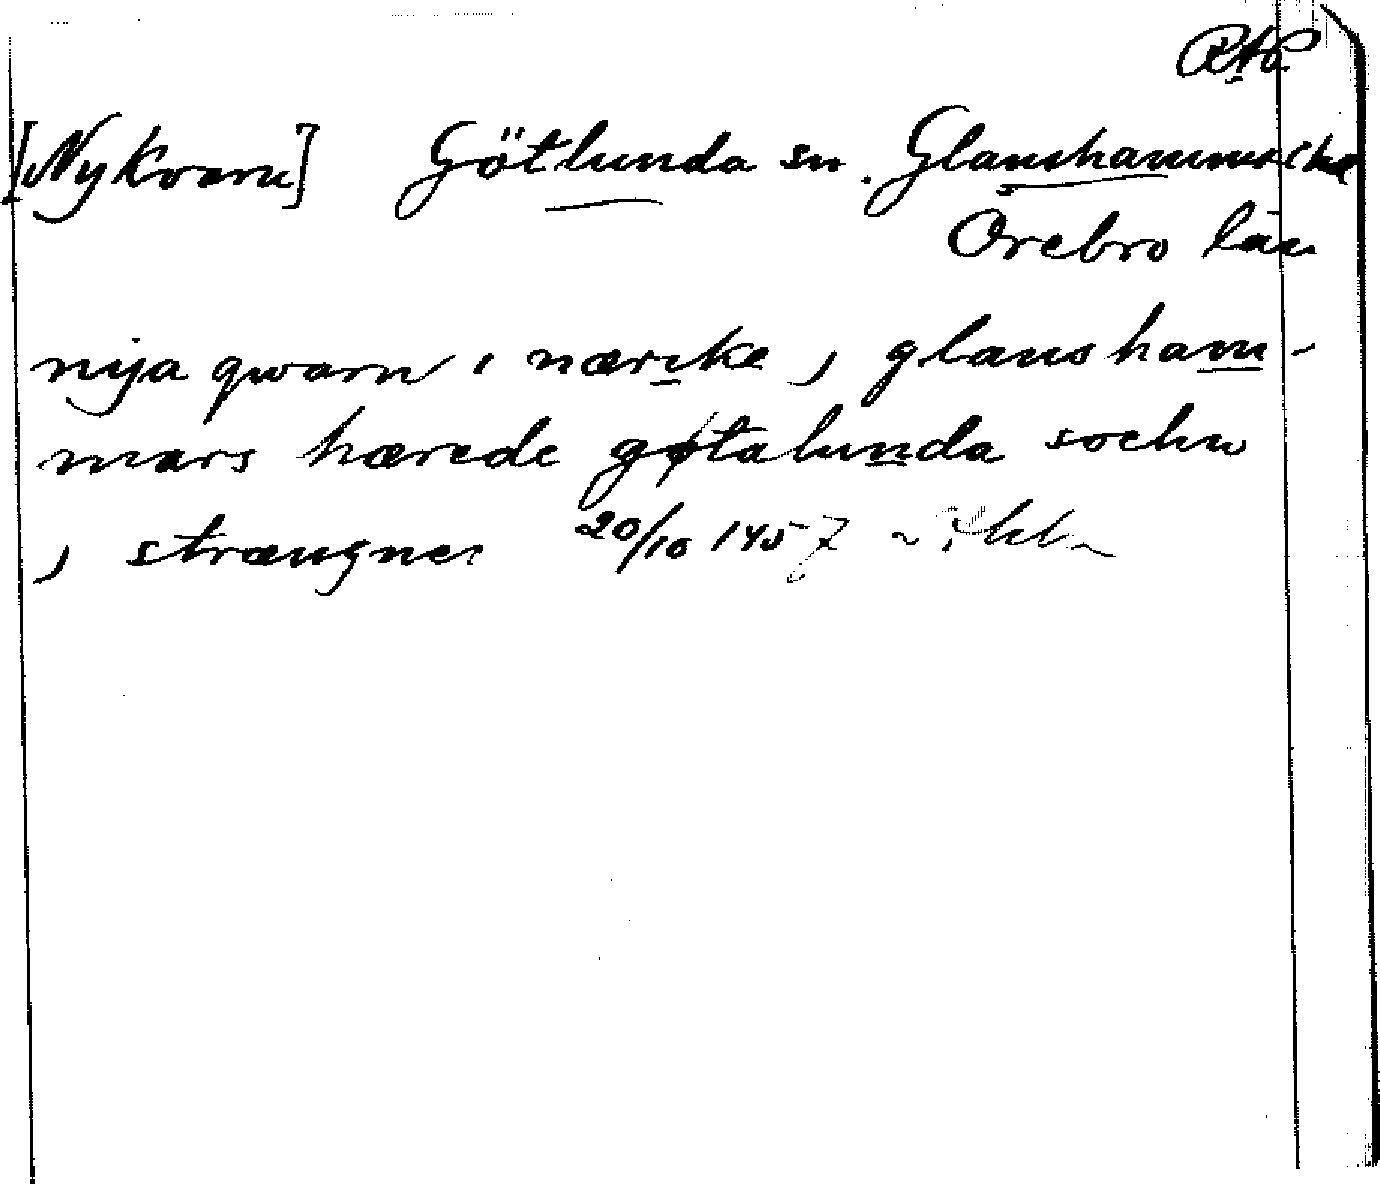 RAP
[Nykvarn] Götlunda sn. Glanshammars hd
Örebro län
nya qwarn i nærike, j glansham-
mars hærede gøtalunda sochn
j strængnes 20/10 1457